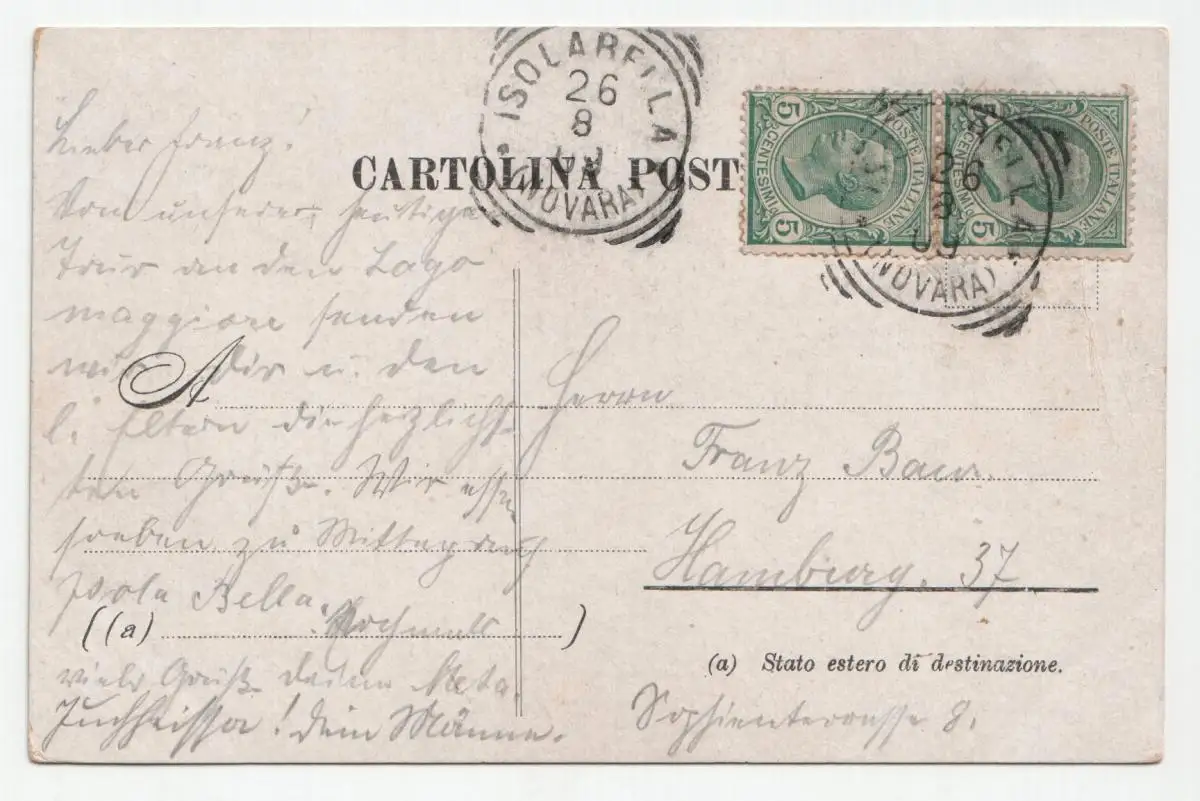 ISOLABELLA
26
8
09
(NOVARA)
CARTOLINA POST
POSTE ITALIANE
CENTESIMI
5
5
POSTE ITALIANE
CENTESIMI
5
BELLA
26
8
09
(NOVARA)
Lieber Franz!
Von unserer heutigen
Tour an den Lago
maggiore senden
wir Dir u. den
l. Eltern die herzlich-
sten Grüße. Wir essen
soeben zu Mittag auf
Isola Bella. Nochmals
viele Grüße deine Meta.
Juchheissa! Dein Männe.
A
Herrn
Franz Baur.
Hamburg. 37
((a) )
(a) Stato estero di destinazione.
Sophienterrasse 8.